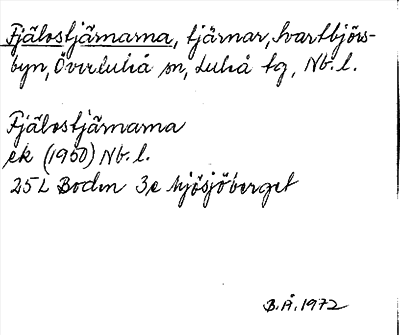 Fjälostjärnarna, tjärnar, Svartbjörs-
byn, Överluleå sn, Luleå tg, Nb. l.
Fjälostjärnarna
ek (1950) Nb. l.
25L Boden 3e Mjösjöberget
B.Å. 1972